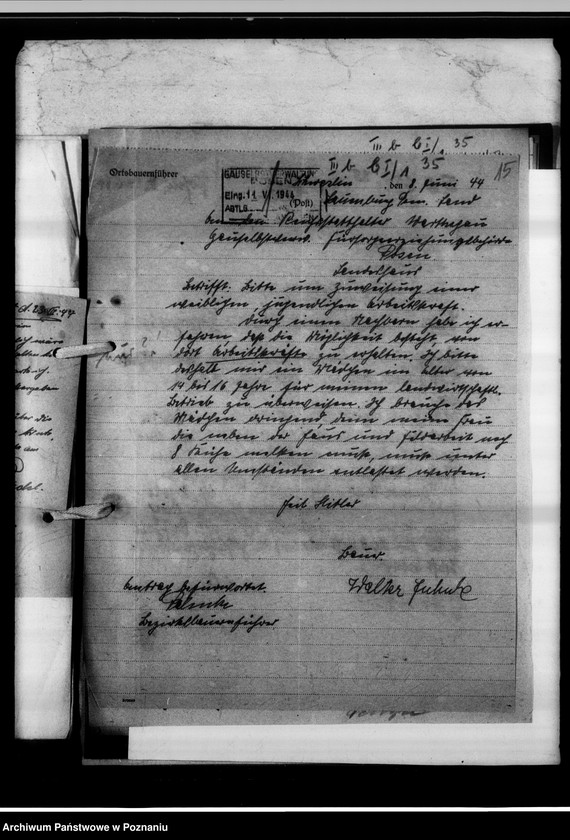 III b C I/1 35
III b C I/1 35
15
Ortsbauernführer
GAUSELBSTVERWALTUNG
POSEN
Eing. 11 VI. 1944
ABTLG.
, den 8. Juni 44
(Post) Land
An den Reichsstatthalter Warthegau
Gauselbstverw. Fürsorgeerziehungsbehörde
Posen
Landeshaus
Betrifft: Bitte um Zuweisung einer
weiblichen jugendlichen Arbeitskraft.
Durch einen Nachbarn habe ich er-
fahren daß die Möglichkeit besteht, von
dort Arbeitskräfte zu erhalten. Ich bitte
deshalb mir ein Mädchen im Alter von
14 bis 16 Jahre für meinen landwirtschaftl.
Betrieb zu überweisen. Ich brauche das
Mädchen dringend denn meine Frau
die neben der Haus und Feldarbeit noch
8 Kühe melken muß, muß unter
allen Umständen entlastet werden.
Heil Hitler
Bauer.
Walter
Antrag befürwortet.
Bezirksbauernführer
Archiwum Państwowe w Poznaniu